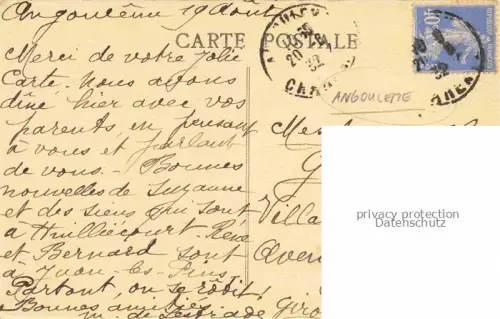 Angoulême 19 Août
CARTE POSTALE
Merci de votre jolie
Carte. Nous avons
dîné hier avec vos
parents, en pensant
à vous et parlant
de vous. — Bonnes
nouvelles de Suzanne
et des siens qui sont
à Huilliécourt. René
et Bernard sont
à Juan-les-Pins.
Partout, on se rôtit!
Bonnes amitiés.
M. de Lestrade
ANGOULETTE
Villa
Aven
Giro
privacy protection
Datenschutz